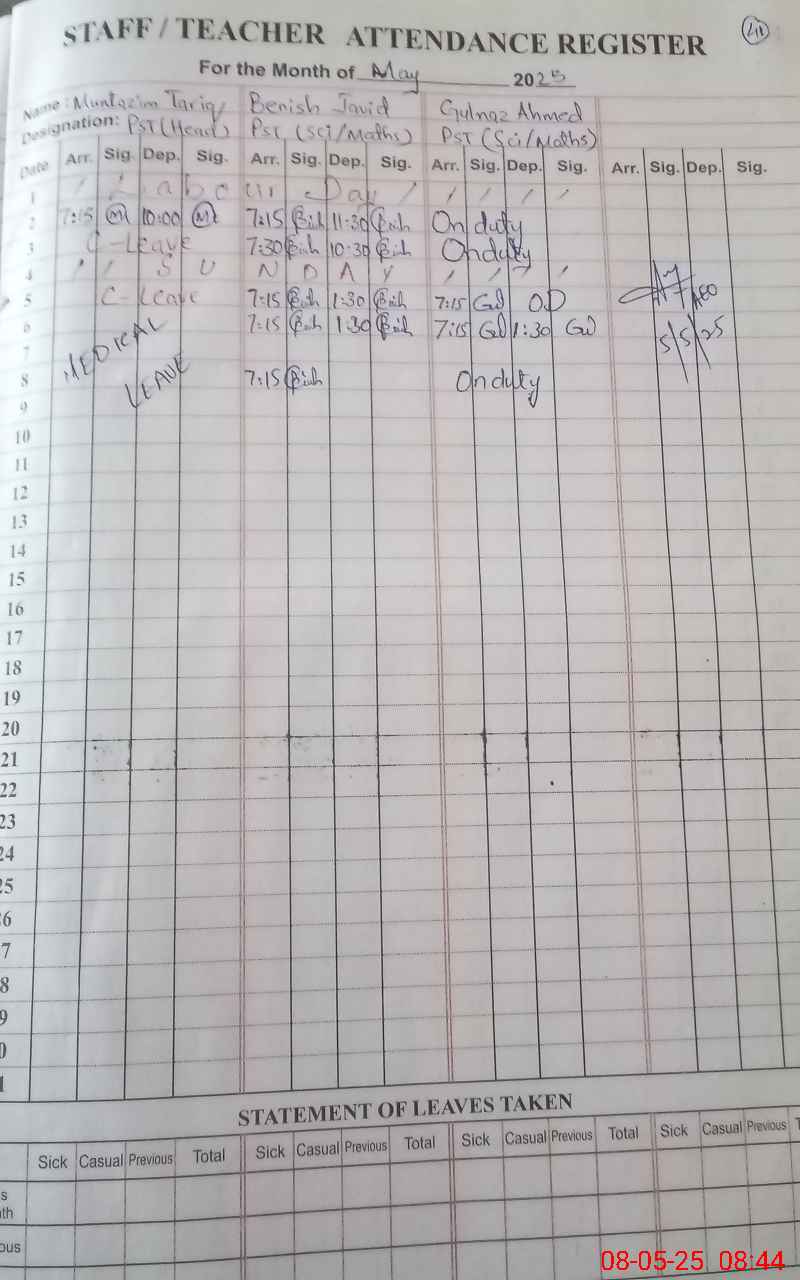 STAFF / TEACHER ATTENDANCE REGISTER
For the Month of May 2025
Name: Muntazim Tariq Benish Javid Gulnaz Ahmed
Designation: PST (Head) PST (Sci/Maths) PST (Sci/Maths)
Date Arr. Sig. Dep. Sig. Arr. Sig. Dep. Sig. Arr. Sig. Dep. Sig. Arr. Sig. Dep. Sig.
1 Labour Day
2 7:15 10:00 7:15 11:30 On duty
3 C-Leave 7:30 10:30 On duty
4 S U N D A Y
5 C-Leave 7:15 1:30 7:15 Gul O.D AEO
6 MEDICAL 7:15 1:30 7:15 Gul 1:30 Gul 5/5/25
7
8 LEAVE 7:15 On duty
9
10
11
12
13
14
15
16
17
18
19
20
21
22
23
24
25
26
7
8
9
0
1
STATEMENT OF LEAVES TAKEN
Sick Casual Previous Total Sick Casual Previous Total Sick Casual Previous Total Sick Casual Previous T
s
th
ous
08-05-25 08:44